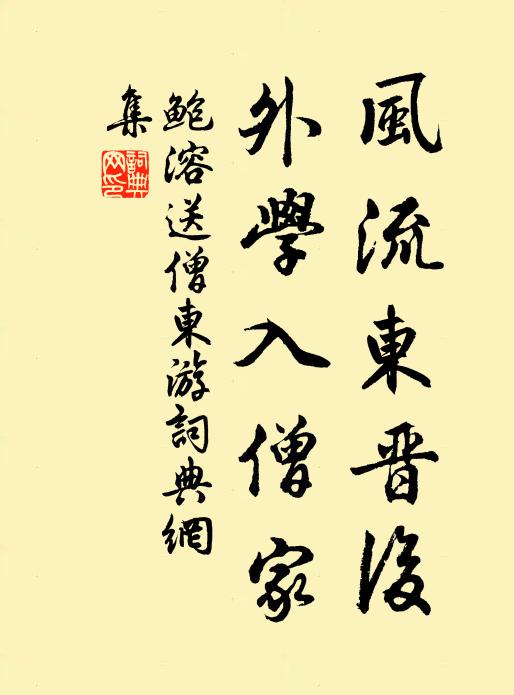 風流東晋後
外學入僧家
鲍溶送僧東游詞典網
集
詞典
网印